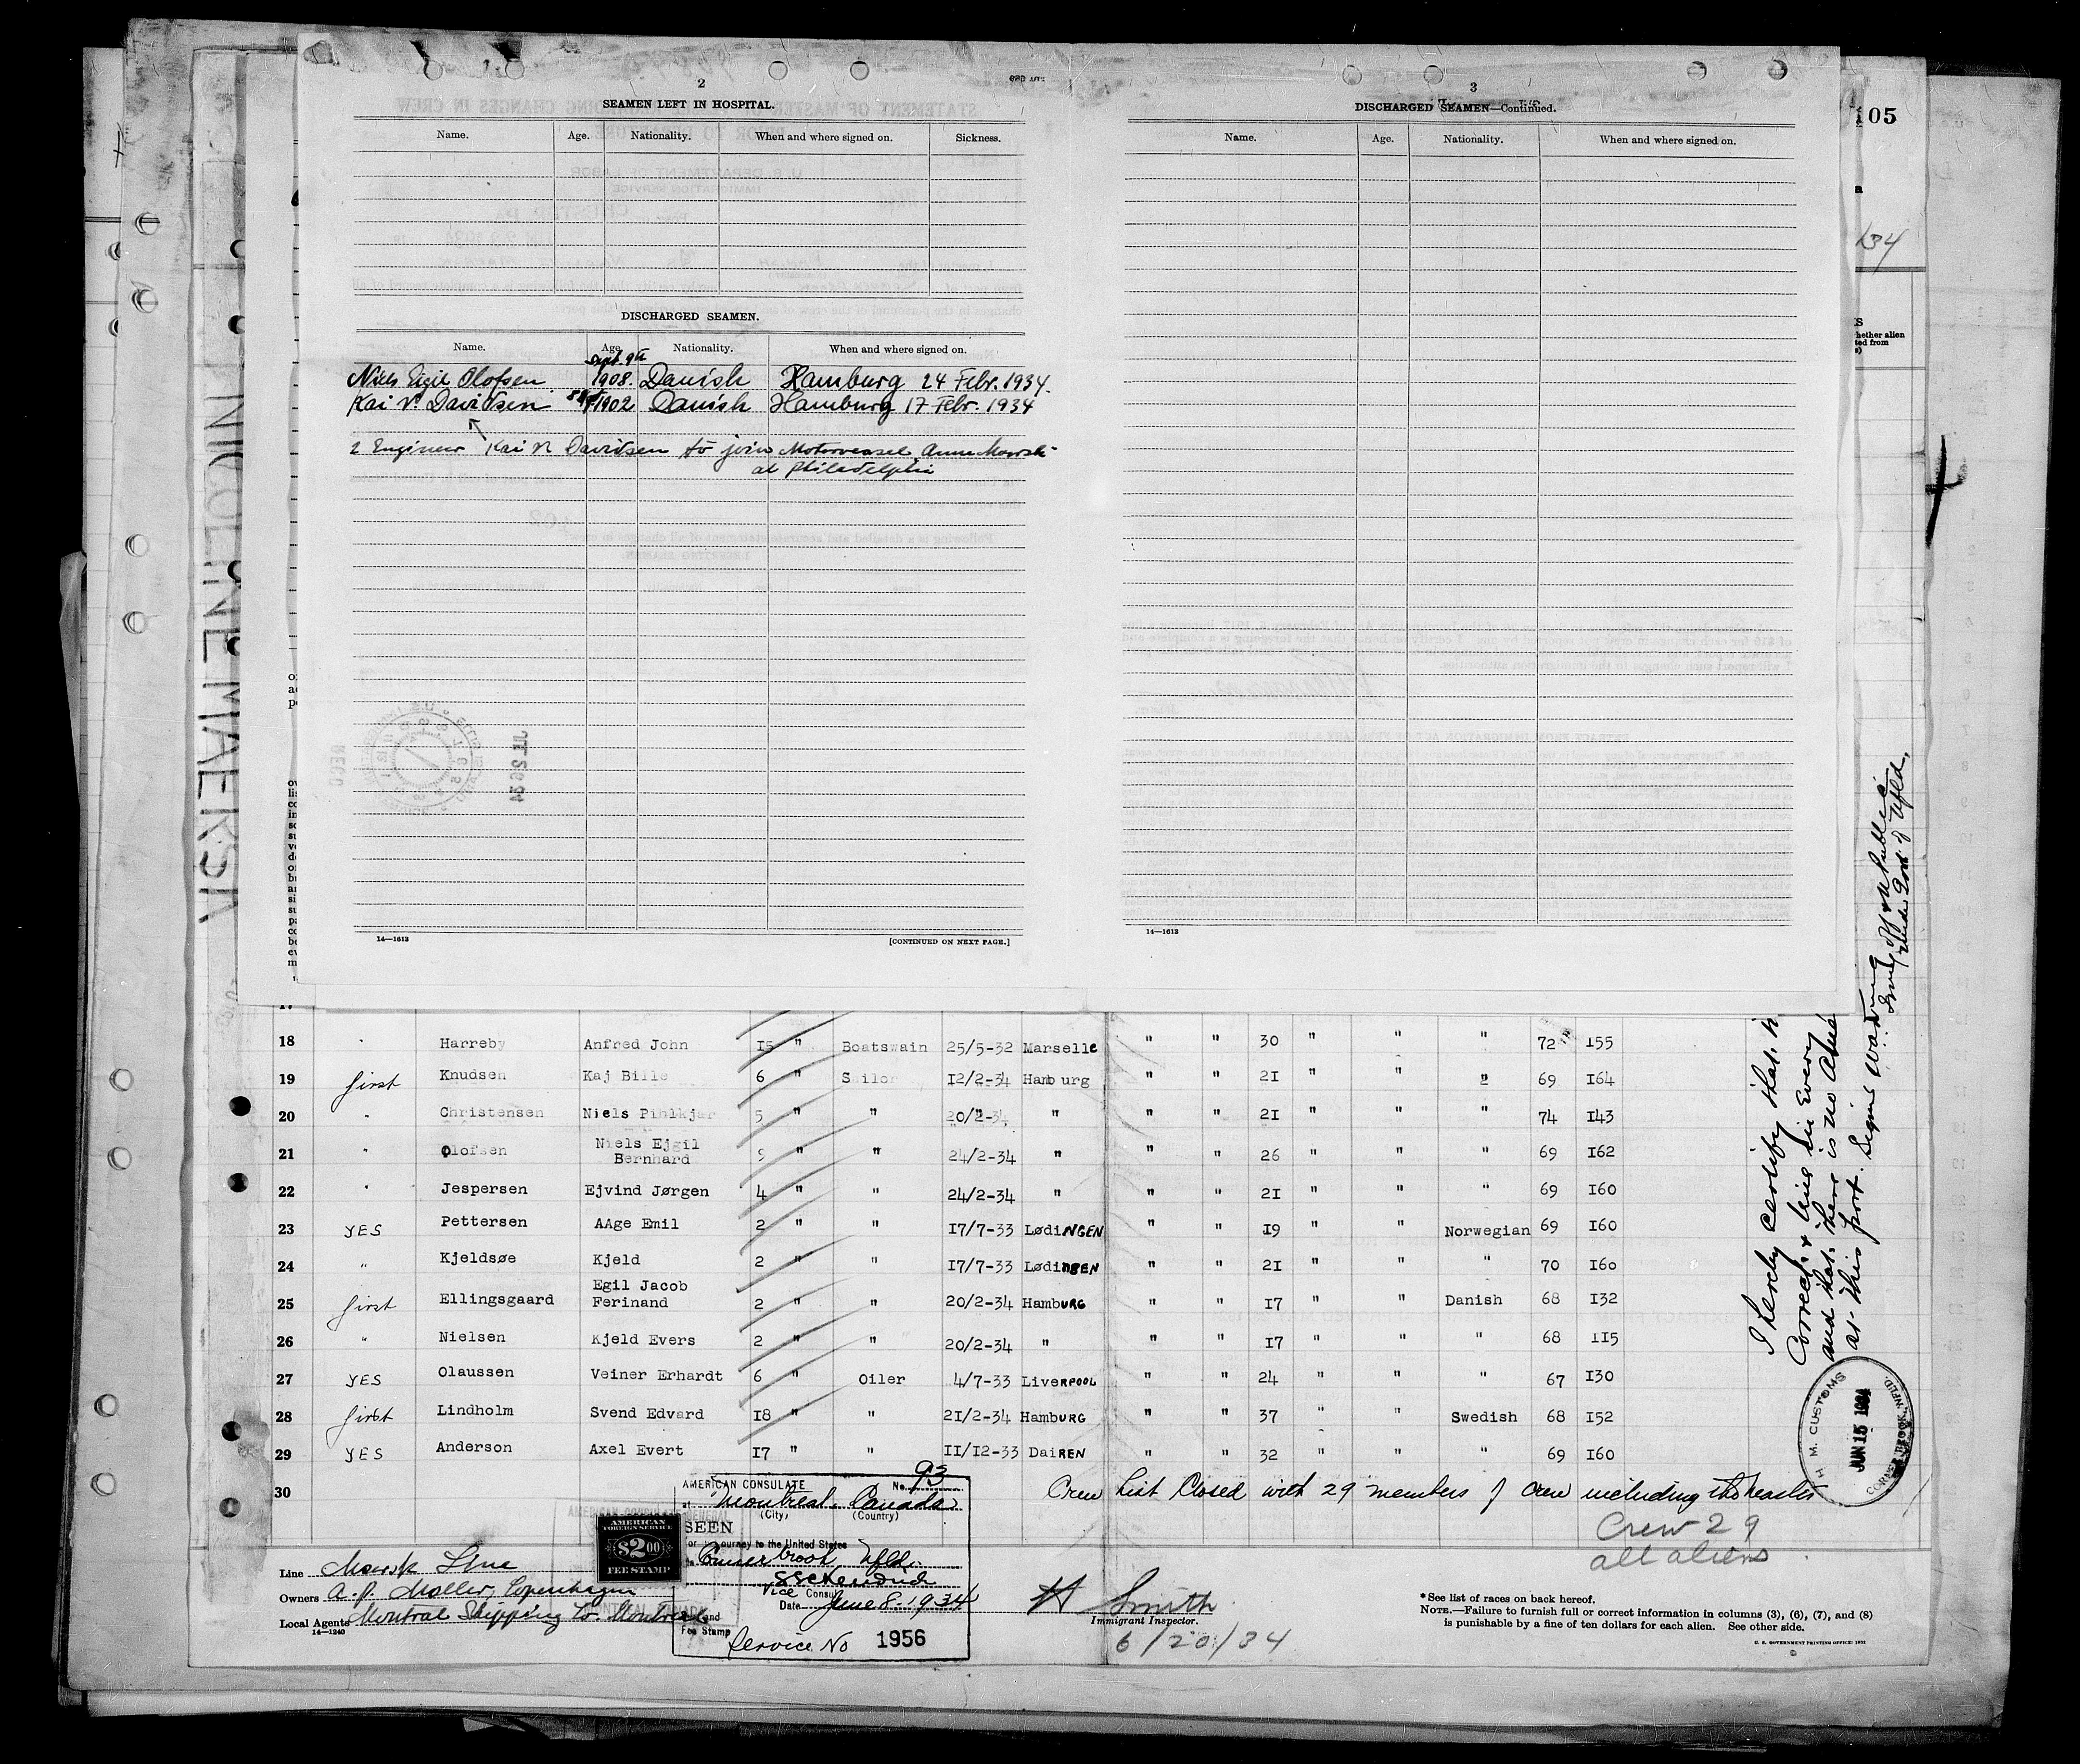 2
SEAMEN LEFT IN HOSPITAL.
Name. Age. Nationality. When and where signed on. Sickness.
DISCHARGED SEAMEN.
Name. Age. Nationality. When and where signed on.
Sept. 9th
Niels Eigil Olofsen 1908. Danish Hamburg 24 Febr. 1934.
Kai N. Davidsen 1902 Danish Hamburg 17 Febr. 1934
2 Engineer Kai N Davidsen to join Motorvessel Anna Maersk
at Philadelphia
14—1613 [CONTINUED ON NEXT PAGE.]
3
DISCHARGED SEAMEN—Continued.
Name. Age. Nationality. When and where signed on.
14—1613
105
134
hether alien
ted from
NICOLINE MAERSK
18 " Harreby Anfred John 15 " Boatswain 25/5-32 Marselle " " 30 " " " 72 155
19 first Knudsen Kaj Bille 6 " Sailor 12/2-34 Hamburg " " 21 " " " 69 164
20 " Christensen Niels Pihlkjar 5 " " 20/2-34 " " " 21 " " " 74 143
21 " Olofsen Niels Ejgil Bernhard 9 " " 24/2-34 " " " 26 " " " 69 162
22 " Jespersen Ejvind Jørgen 4 " " 24/2-34 " " " 21 " " " 69 160
23 YES Pettersen AAge Emil 2 " " 17/7-33 LødiNGEN " " 19 " " Norwegian 69 160
24 " Kjeldsøe Kjeld 2 " " 17/7-33 LødiNGEN " " 21 " " " 70 160
25 first Ellingsgaard Egil Jacob Ferinand 2 " " 20/2-34 HambURG " " 17 " " Danish 68 132
26 " Nielsen Kjeld Evers 2 " " 20/2-34 " " " 17 " " " 68 115
27 YES Olaussen Veiner Erhardt 6 " Oiler 4/7-33 LivERPOOL " " 24 " " " 67 130
28 first Lindholm Svend Edvard 18 " " 21/2-34 HambURG " " 37 " " Swedish 68 152
29 YES Anderson Axel Evert 17 " " 11/12-33 DaiREN " " 32 " " " 69 160
30
Crew List Closed with 29 members of crew including the master
Crew 29
all aliens
AMERICAN CONSULATE No. 93
at Montreal, Canada.
(City) (Country)
SEEN
For journey to the United States
Cornerbrook Nfld.
Vice Consul
Date June 8. 1934
Fee Stamp
Service No 1956
AMERICAN
FOREIGN SERVICE
$2.00
FEE STAMP
Line Maersk Line
Owners A. P. Moller, Copenhagen
Local Agents Montreal Shipping Co. Montreal
14—1240
H Smith
Immigrant Inspector.
6/20/34
*See list of races on back hereof.
NOTE.—Failure to furnish full or correct information in columns (3), (6), (7), and (8)
is punishable by a fine of ten dollars for each alien. See other side.
U. S. GOVERNMENT PRINTING OFFICE: 1932
I hereby certify that
Correct & true in every
and that there is no
at this port. Signed
H. M. CUSTOMS
JUN 15 1934
CORNER BROOK, NFLD.